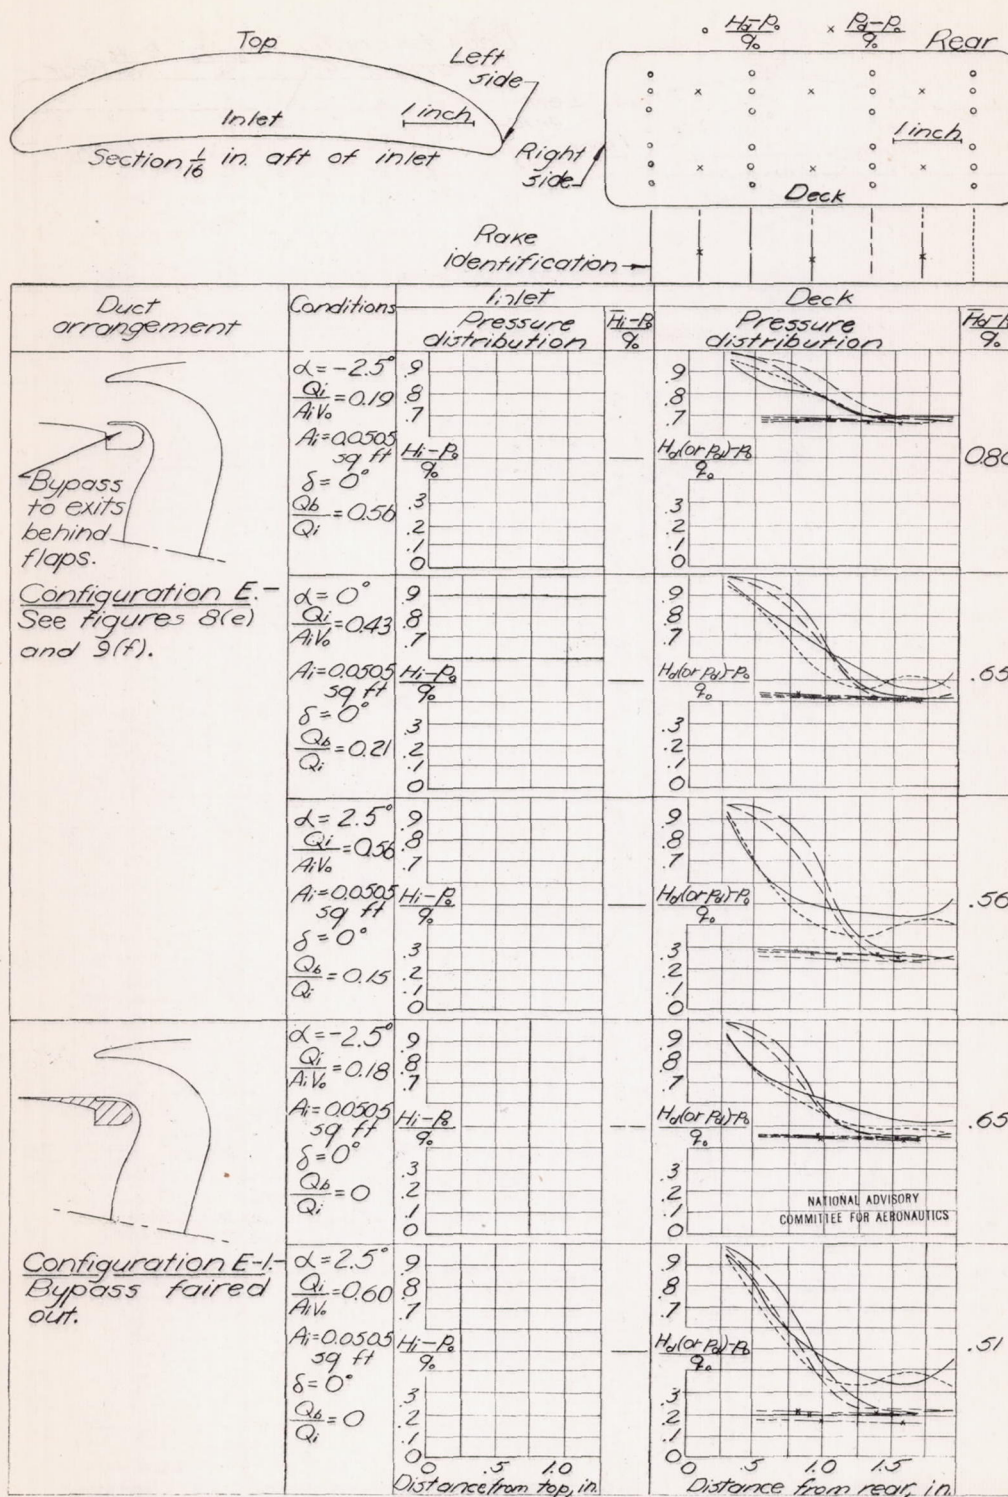 ∘ Hd-p₀/q₀ × pd-p₀/q₀
Top
Left side
Rear
Inlet
1 inch
1 inch
Section 1/16 in. aft of inlet
Right side
Deck
Rake identification
Duct arrangement
Conditions
Inlet
Deck
Pressure distribution
Hi-p₀/q₀
Pressure distribution
Bypass to exits behind flaps.
Configuration E.-
See figures 8(e)
and 9(f).
α = -2.5°
Qi/AiV₀ = 0.19
Ai = 0.0505 sq ft
δ = 0°
Qb/Qi = 0.56
.9
.8
.7
Hi-p₀/q₀
.3
.2
.1
0
—
.9
.8
.7
Hd(or pd)-p₀/q₀
.3
.2
.1
0
α = 0°
Qi/AiV₀ = 0.43
Ai = 0.0505 sq ft
δ = 0°
Qb/Qi = 0.21
.9
.8
.7
Hi-p₀/q₀
.3
.2
.1
0
—
.9
.8
.7
Hd(or pd)-p₀/q₀
.3
.2
.1
0
.65
α = 2.5°
Qi/AiV₀ = 0.56
Ai = 0.0505 sq ft
δ = 0°
Qb/Qi = 0.15
.9
.8
.7
Hi-p₀/q₀
.3
.2
.1
0
—
.9
.8
.7
Hd(or pd)-p₀/q₀
.3
.2
.1
0
.56
Configuration E-1.-
Bypass faired
out.
α = -2.5°
Qi/AiV₀ = 0.18
Ai = 0.0505 sq ft
δ = 0°
Qb/Qi = 0
.9
.8
.7
Hi-p₀/q₀
.3
.2
.1
0
—
.9
.8
.7
Hd(or pd)-p₀/q₀
.3
.2
.1
0
.65
NATIONAL ADVISORY
COMMITTEE FOR AERONAUTICS
α = 2.5°
Qi/AiV₀ = 0.60
Ai = 0.0505 sq ft
δ = 0°
Qb/Qi = 0
.9
.8
.7
Hi-p₀/q₀
.3
.2
.1
0
—
.9
.8
.7
Hd(or pd)-p₀/q₀
.3
.2
.1
0
.51
0 .5 1.0
Distance from top, in.
0 .5 1.0 1.5
Distance from rear, in.